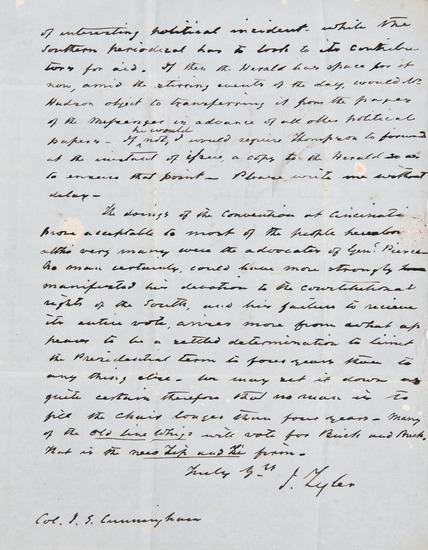 of interesting political incident - while the
Southern periodical has to look to its contribu-
tors for aid. If then the Herald has space for it
now, amid the stirring events of the day, would Mr
Hudson object to transferring it from the pages
of the Messenger in advance of all other political
papers - If not, I would require Thompson to forward
he would
at the instant of issue, a copy to the Herald so as
to ensure that point - Please write me without
delay -
The doings of the Convention at Cincinati
prove acceptable to most of the people
altho very many were the advocates of Genl Pierce
No man certainly, could have more strongly
manifested his devotion to the constitutional
rights of the South, and his failure to recieve
its entire vote, arises more from what ap
pears to be a settled determination to limit
the Presidential term to four years than to
any thing else - We may set it down as
quite certain therefore that no man is to
fill the Chair longer than four years - Many
of the old line Whigs will vote for Buck and Breck.
that is the new Tip and Ty from -
Truly Yrs
J. Tyler
Col. J. S. Cunningham